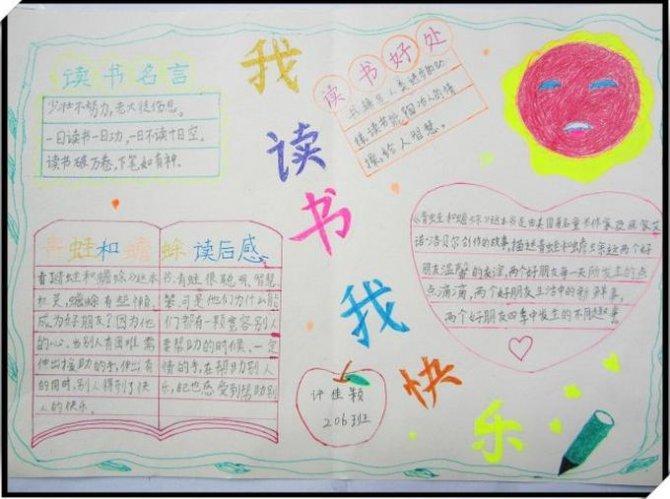 读书名言
少壮不努力,老大徒伤悲。
一日读书一日功,一日不读十日空。
读书破万卷,下笔如有神。
我
读
书
我
快
乐
读书好处
书籍是人类进步的动
梯,读书能陶冶人的情
操,给人智慧。
青蛙和蟾蜍读后感
看了《青蛙和蟾蜍》这本书,青蛙很聪明、智慧
和灵,蟾蜍有些懒
可是他们为什么能
成为好朋友?因为他们都有一颗宽容别人
的心。当别人有困难需要帮助的时候,一定
伸出援助的手,伸出有情的手,在帮助别人
的同时,别人得到了快乐,自己也感受到帮助别
人的快乐。
《青蛙和蟾蜍》这本书是由美国著名童书作家
艾
诺·洛贝尔创作的故事,描述青蛙和蟾蜍这两个好
朋友温馨的友谊,两个好朋友每一天所发生的点
点滴滴,两个好朋友生活中的新鲜事,
两个好朋友四季中发生的不同趣事
许佳颖
206班